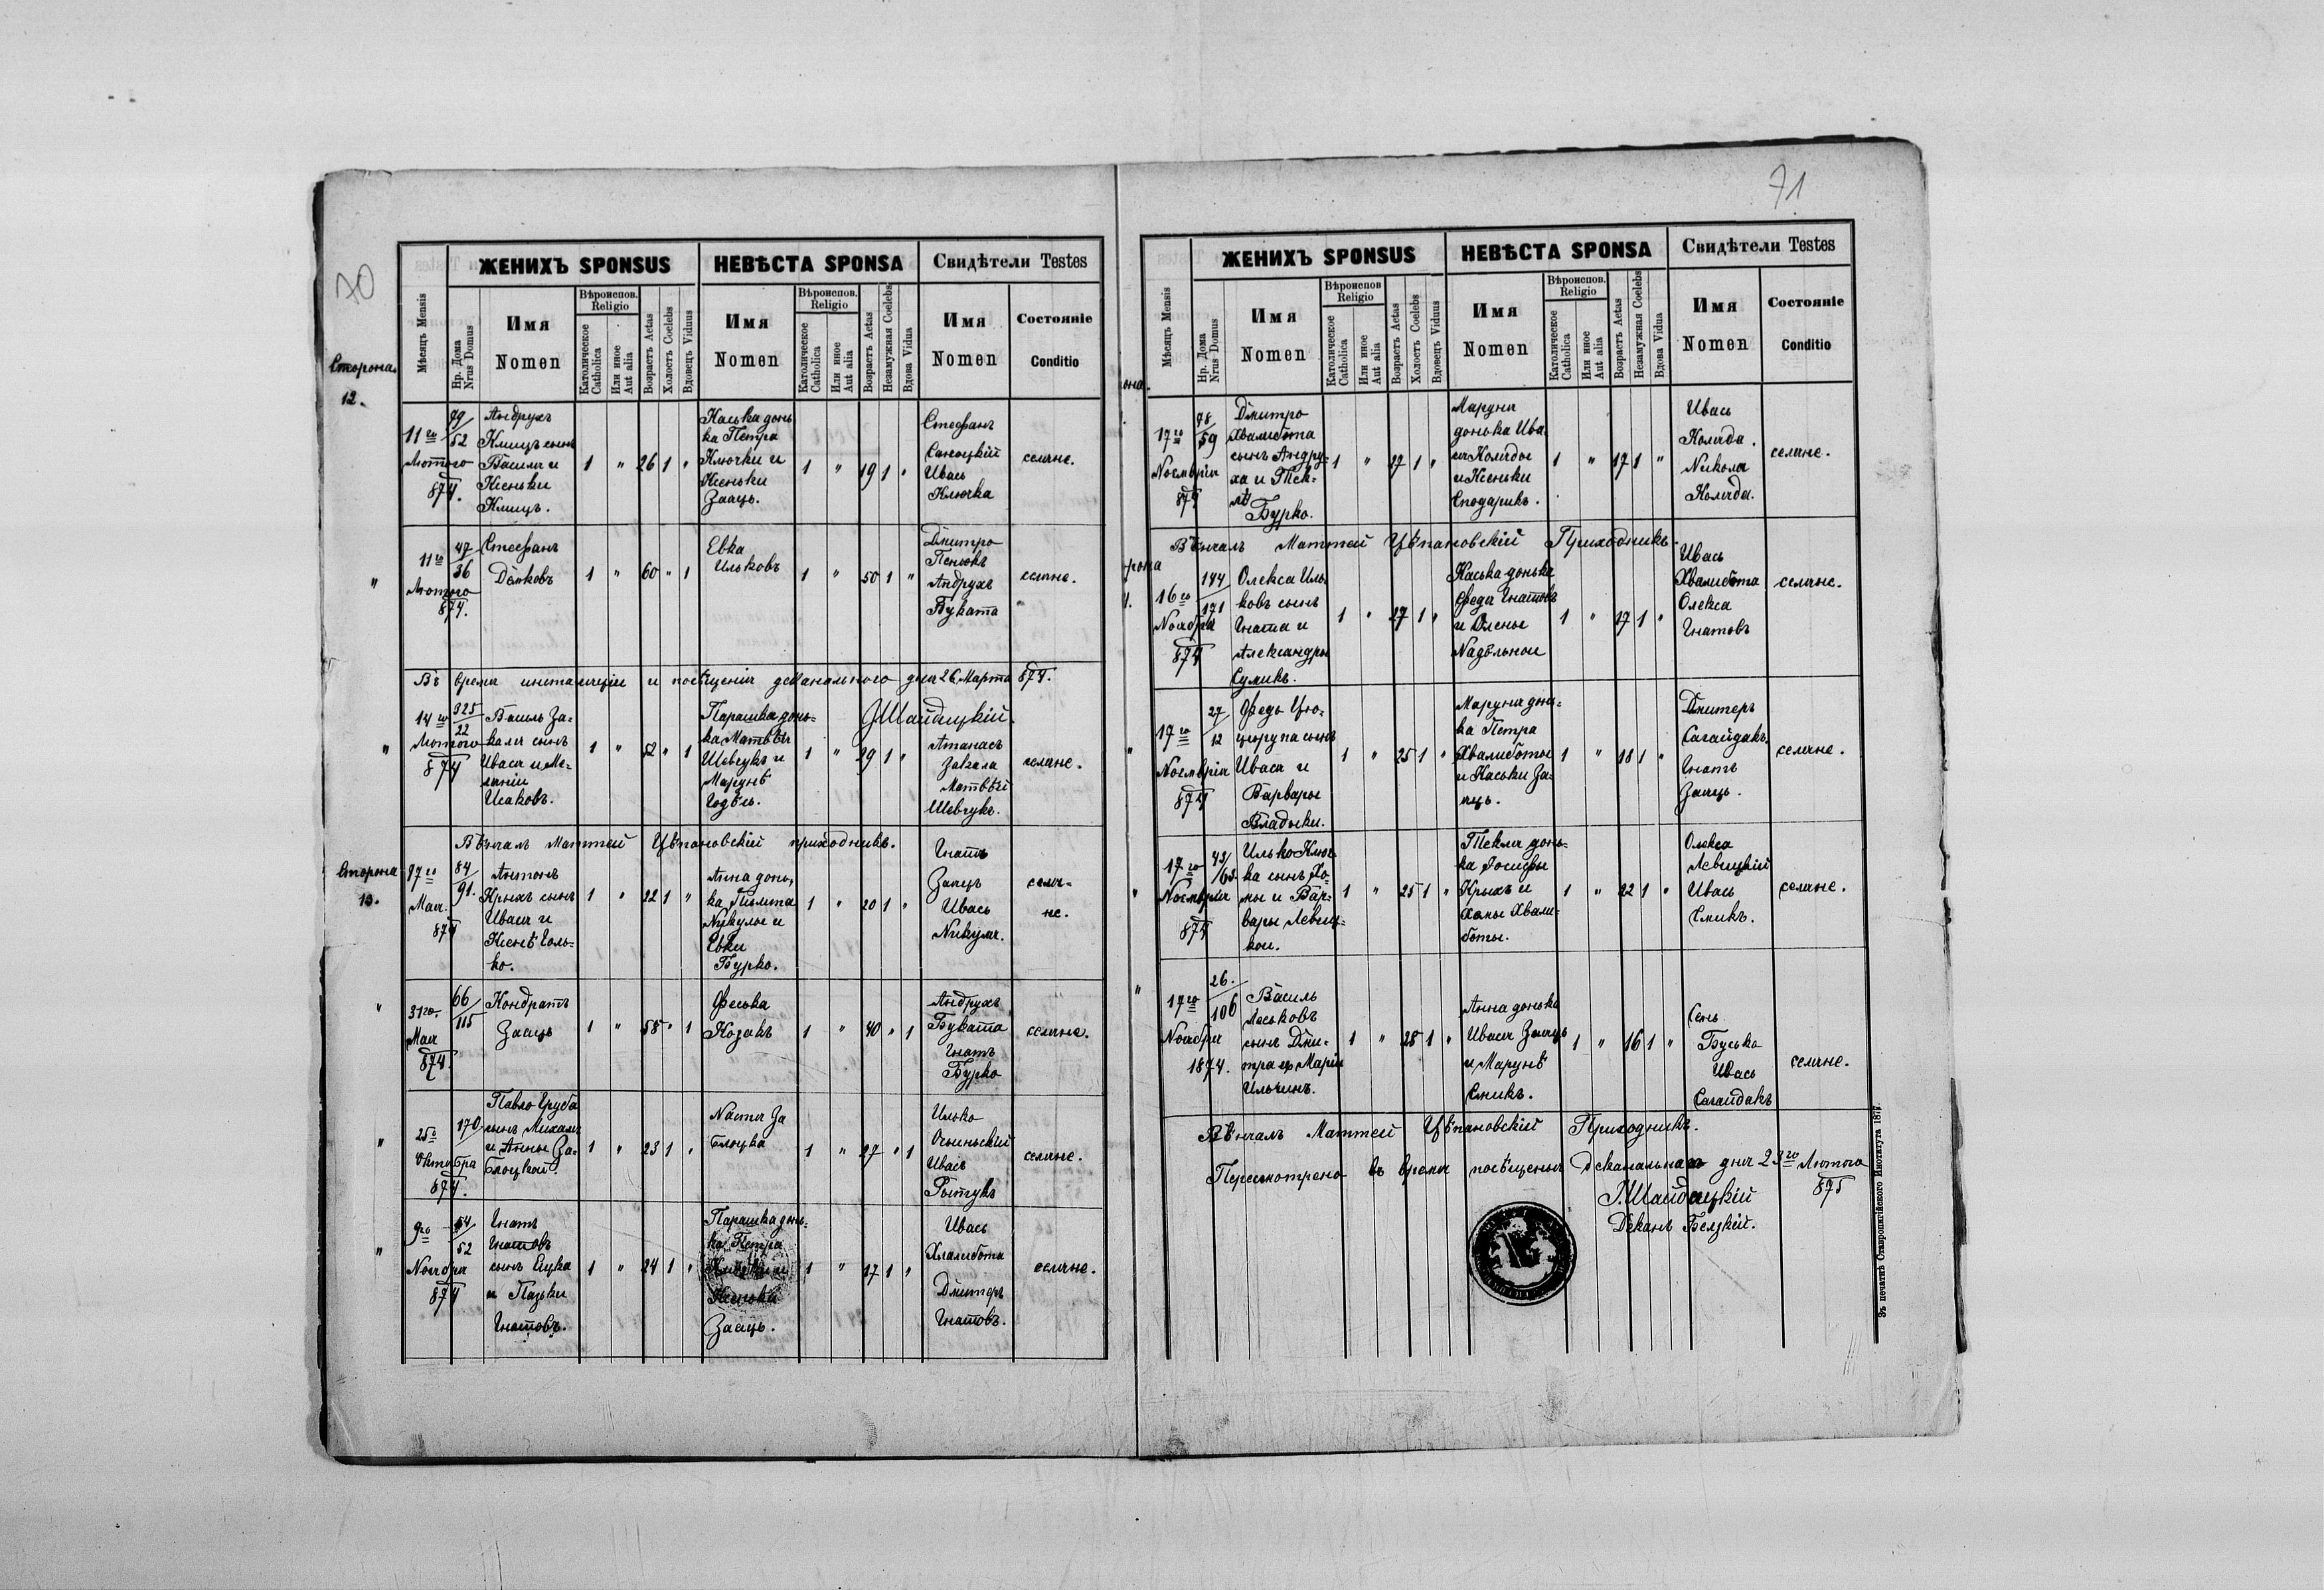 70
Сторона
12.
ЖЕНИХЪ SPONSUS
НЕВѢСТА SPONSA
Свидѣтели Testes
Мѣсяцъ Mensis
Нр. Дома
Nrus Domus
Имя
Nomen
Вѣроиспов.
Religio
Католическое
Catholica
Или иное
Aut alia
Возрастъ Aetas
Холость Coelebs
Вдовецъ Viduus
Имя
Nomen
Вѣроиспов.
Religio
Католическое
Catholica
Или иное
Aut alia
Возрастъ Aetas
Незамужная Coelebs
Вдова Vidua
Имя
Nomen
Состояніе
Conditio
11го
Лютого
874.
79/52
Андрухъ
Климъ сынъ
Василя и
Ксеньки
Климъ.
1 " 26 1 "
Каська донь
ка Петра
Ключки и
Ксеньки
Заяць.
1 " 19 1 "
Стефанъ
Саноцкій
Ивась
Ключка
селяне.
"
11го
Лютого
874.
47/36
Стефанъ
Дѣмковъ
1 " 60 " 1
Евка
Ильковъ
1 " 50 1 "
Дмитро
Пенюкъ
Андрухъ
Буката
селяне.
Въ время инсталяціи и посѣщенія деканального дня 26 Марта 874.
ЈШайдицкій.
"
14го
Лютого
874
325/22
Василь За-
кала сынъ
Ивася и Ме-
ланіи
Исаковъ.
1 " 52 " 1
Парашка донь-
ка Матвѣя
Шевчукъ и
Марунѣ
Годѣль.
1 " 29 1 "
Атанасъ
Закала
Матвѣй
Шевчукъ.
селяне.
Вѣнчалъ Маттей Цѣпановскій приходникъ.
Сторона
13.
27го
Мая.
874
84/91.
Антонъ
Крыхъ сынъ
Ивася и
Ксенѣ Голь-
ко.
1 " 22 1 "
Анна донь,
ка
Никулы и
Евки
Бурко.
1 " 20 1 "
Гнатъ
Заяцъ
Ивась
Никула.
селя-
не.
"
31го.
Мая
874.
66/115
Кондратъ
Заяцъ
1 " 58 " 1
Феська
Козакъ
1 " 40 " 1
Андрухъ
Буката
Гнатъ
Бурко
селяне.
"
25о
Октобра
874.
170
Павло Груба
сынъ Михаля
и Анны За-
блоцкой.
1 " 23 1 "
Настя За
блоцка
1 " 27 " 1
Илько
Ивась
селяне.
"
9го
Ноября
874
54/52
Гнатъ
Гнатовъ
сынъ Яцка
и Пазьки
Гнатовъ.
1 " 24 1 "
Парашка донь-
ка Петра
Ксеньки
Заяць.
1 " 17 1 "
Ивась
Хвалибота
Дмитеръ
Гнатовъ.
селяне.
71
ЖЕНИХЪ SPONSUS
НЕВѢСТА SPONSA
Свидѣтели Testes
Мѣсяцъ Mensis
Нр. Дома
Nrus Domus
Имя
Nomen
Вѣроиспов.
Religio
Католическое
Catholica
Или иное
Aut alia
Возрастъ Aetas
Холость Coelebs
Вдовецъ Viduus
Имя
Nomen
Вѣроиспов.
Religio
Католическое
Catholica
Или иное
Aut alia
Возрастъ Aetas
Незамужная Coelebs
Вдова Vidua
Имя
Nomen
Состояніе
Conditio
она.
17го
Ноемврія
874
78/59
Дмитро
Хвалибота
сынъ Андру-
ха и Тек-
лѣ
Бурко.
1 " 27 1 "
Маруня
донька Ива
ся Коляды
и Ксеньки
Сподаривъ.
1 " 17 1 "
Ивась
Коляда.
Никола
Коляда.
селяне.
Вѣнчалъ Маттей Цѣпановскій Приходникъ.
рона
16го
Ноября
874
144/171
Олекса Иль
ковъ сынъ
Гната и
Александры
Сумикъ.
1 " 27 1 "
Каська донька
Федя Гнатовъ
и Олены
Надѣльнои
1 " 17 1 "
Ивась
Хвалибота
Олекса
Гнатовъ
селяне.
"
17го
Ноемврія
874
27/12
Федь Цю-
цюрупа сынъ
Ивася и
Варвары
Владыки.
1 " 25 1 "
Маруня донь-
ка Петра
Хвалиботы
и Каськи За-
яць.
1 " 18 1 "
Дмитеръ
Сагайдакъ.
Гнатъ
Заяць.
селяне.
"
17го
Ноемврія
874
43/63.
Илько Ключ
ка сынъ Хо-
мы и Вар-
вары Левиц-
кои.
1 " 25 1 "
Текля донь-
ка Іосифы
Крыхъ и
Хомы Хвали-
боты.
1 " 22 1 "
Олекса
Левицкій
Ивась
Смикъ.
селяне.
"
17го
Ноября
1874.
26./106
Василь
Леськовъ
сынъ Дми-
тра и Маріи
Ильчинъ.
1 " 28 1 "
Анна донька
Ивася Заяць
и Марунѣ
Смикъ.
1 " 16 1 "
Сень
Буська
Ивась
Сагайдакъ
селяне.
Вѣнчалъ Маттей Цѣпановскій Приходникъ.
Пересмотрено въ время посѣщенья Деканального дня 23го Лютого
875
ЈШайдицкій
Деканъ Белзкій.
Зъ печатнѣ Ставропигійского Института 187.